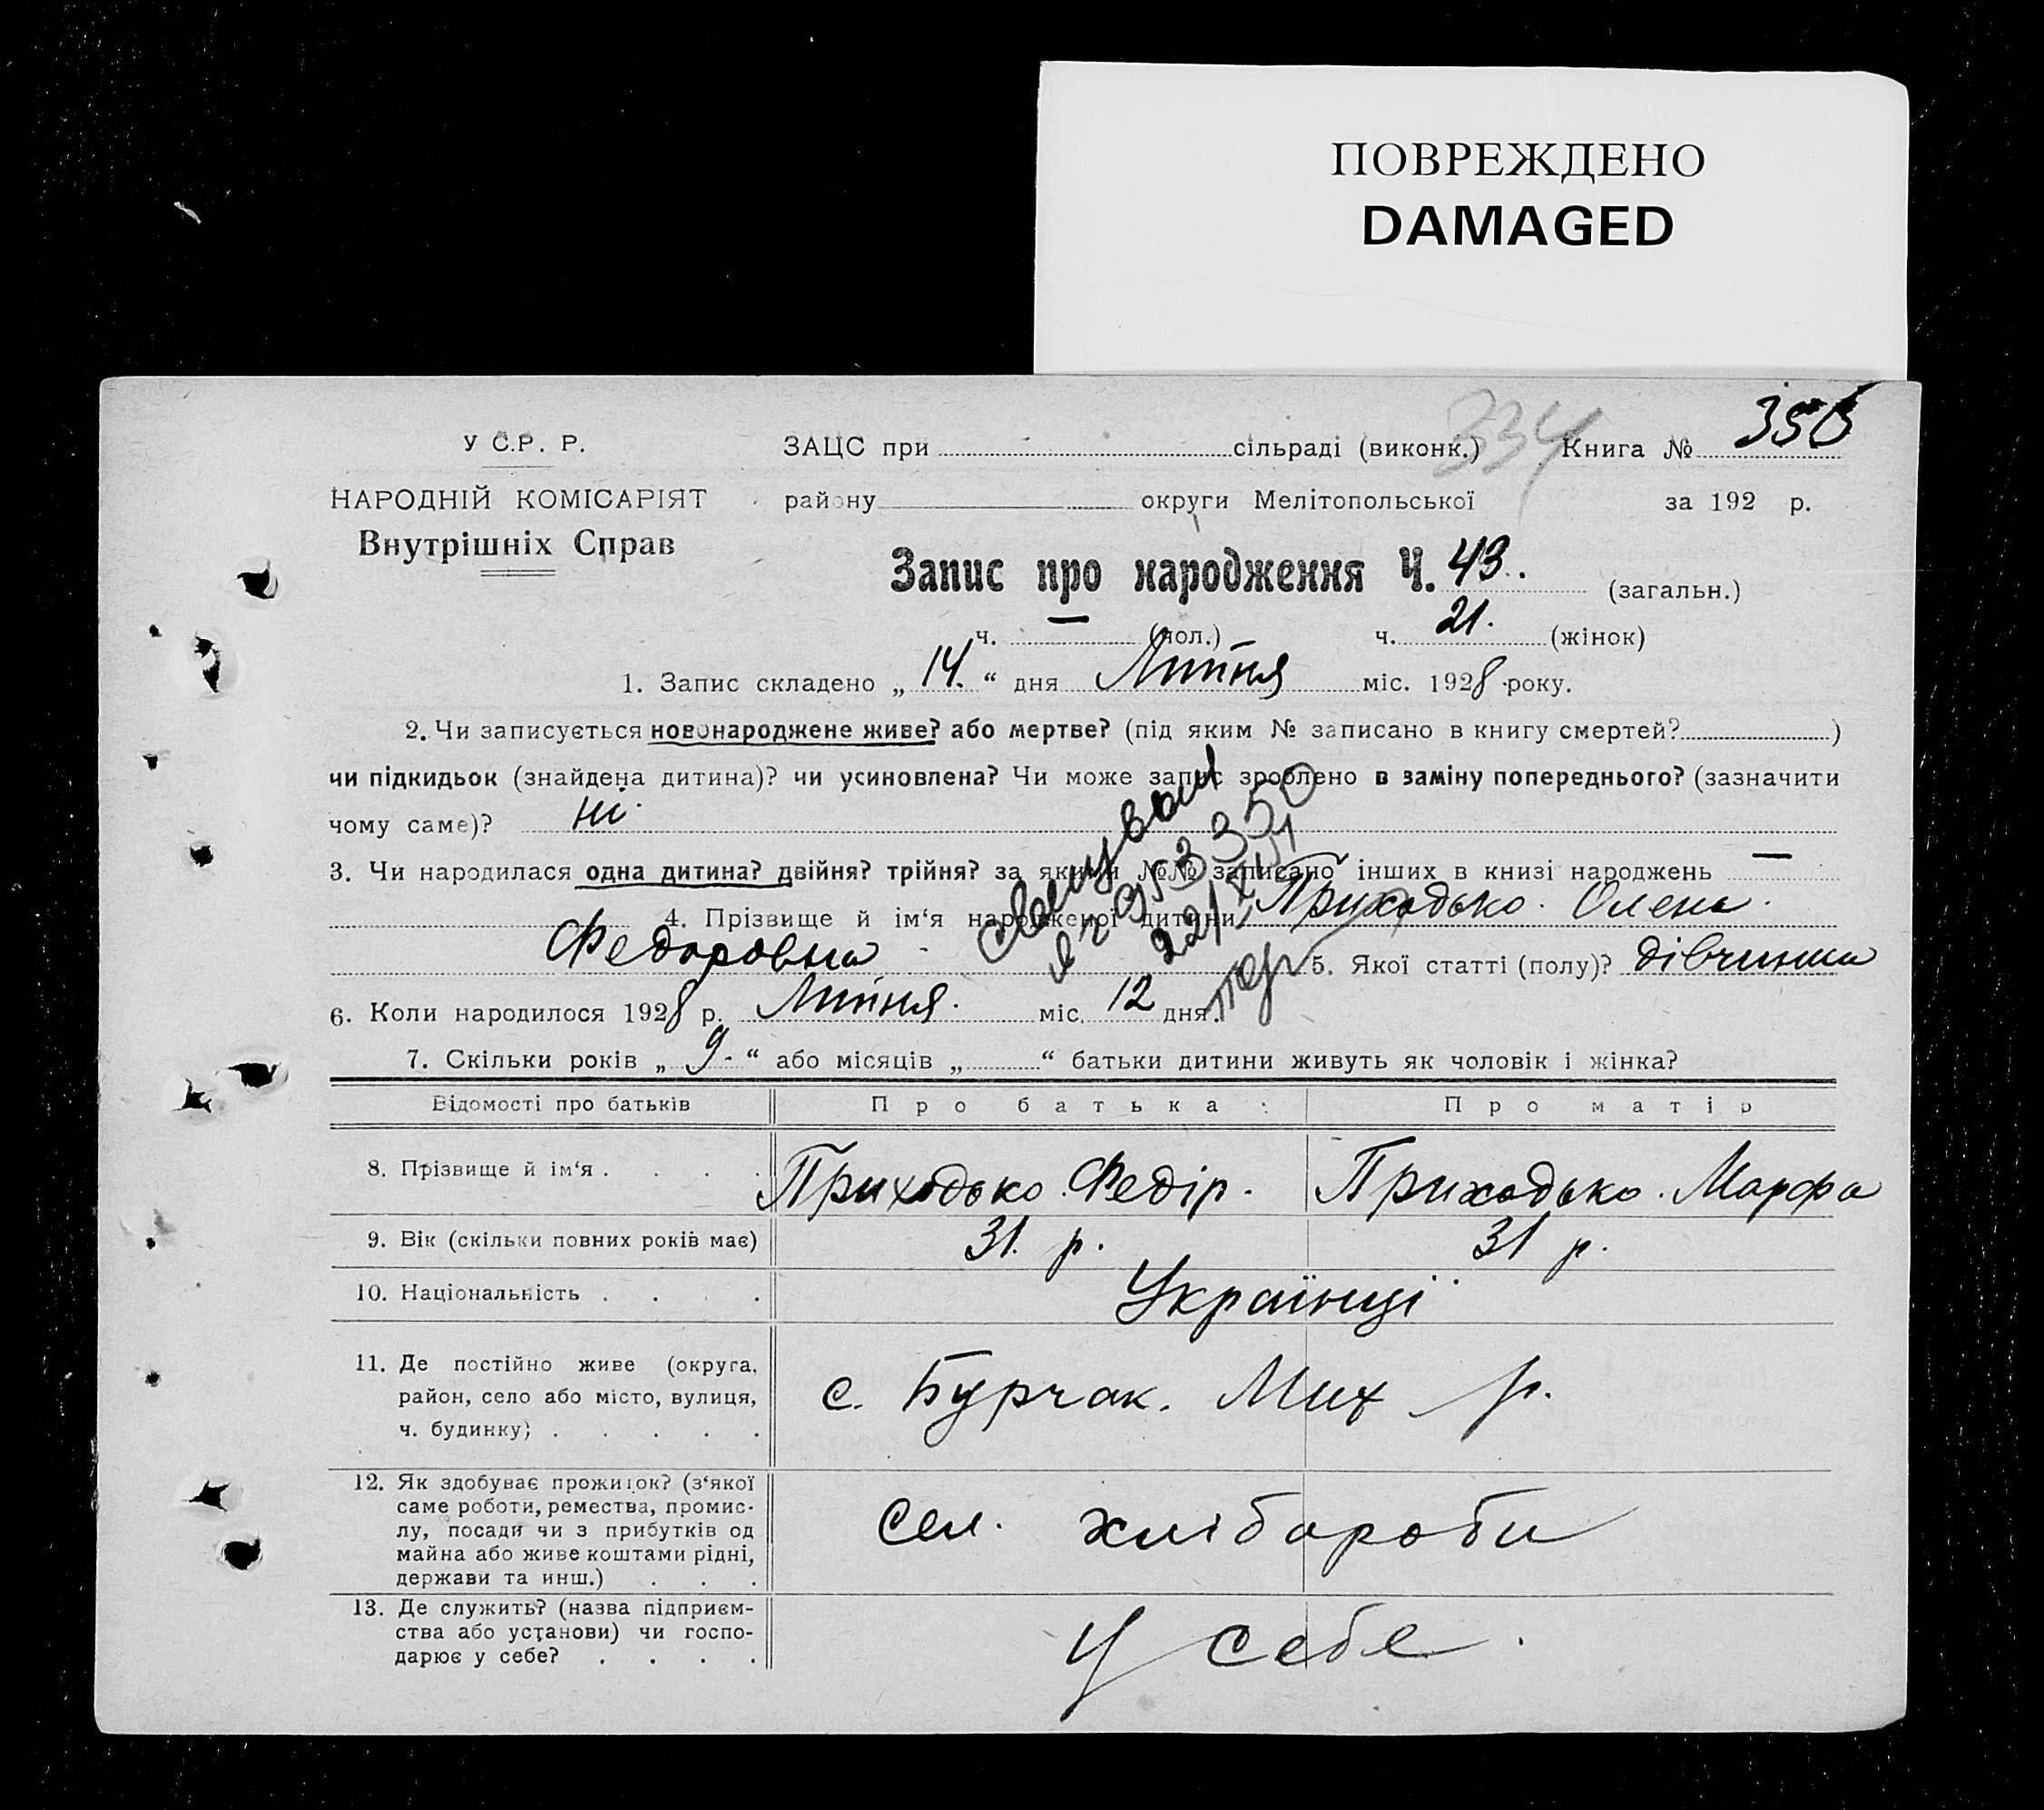 ПОВРЕЖДЕНО
DAMAGED
334
У С.Р. Р.
ЗАЦС при сільраді (виконк.) Книга № 356
НАРОДНІЙ КОМІСАРІЯТ
району округи Мелітопольської за 192 р.
Внутрішніх Справ
Запис про народження Ч. 43. (загальн.)
ч. — (чол.) ч. 21. (жінок)
1. Запис складено „ 14. “ дня Липня міс. 1928 року.
2. Чи записується новонароджене живе? або мертве? (під яким № записано в книгу смертей? )
чи підкидьок (знайдена дитина)? чи усиновлена? Чи може запис зроблено в заміну попереднього? (зазначити
чому саме)? ні.
3. Чи народилася одна дитина? двійня? трійня? за якими №№ записано інших в книзі народжень —
4. Прізвище й ім‘я народженої дитини Приходько. Олена.
Федоровна 5. Якої статті (полу)? дівчинка
6. Коли народилося 1928 р. Липня. міс. 12 дня.
7. Скільки років „ 9. “ або місяців „ “ батьки дитини живуть як чоловік і жінка?
Відомості про батьків Про батька: Про матір
8. Прізвище й ім‘я . . . . Приходько. Федір. Приходько. Марфа
9. Вік (скільки повних років має) 31. р. 31 р.
10. Національність . . . . Українці
11. Де постійно живе (округа,
район, село або місто, вулиця,
ч. будинку) . . . . .
с. Бурчак. Мих р.
12. Як здобуває прожиток? (з‘якої
саме роботи, ремества, промис-
лу, посади чи з прибутків од
майна або живе коштами рідні,
держави та инш.) . . .
Сел. хлібороби
13. Де служить? (назва підприєм-
ства або установи) чи госпо-
дарює у себе? . . . .
У себе.